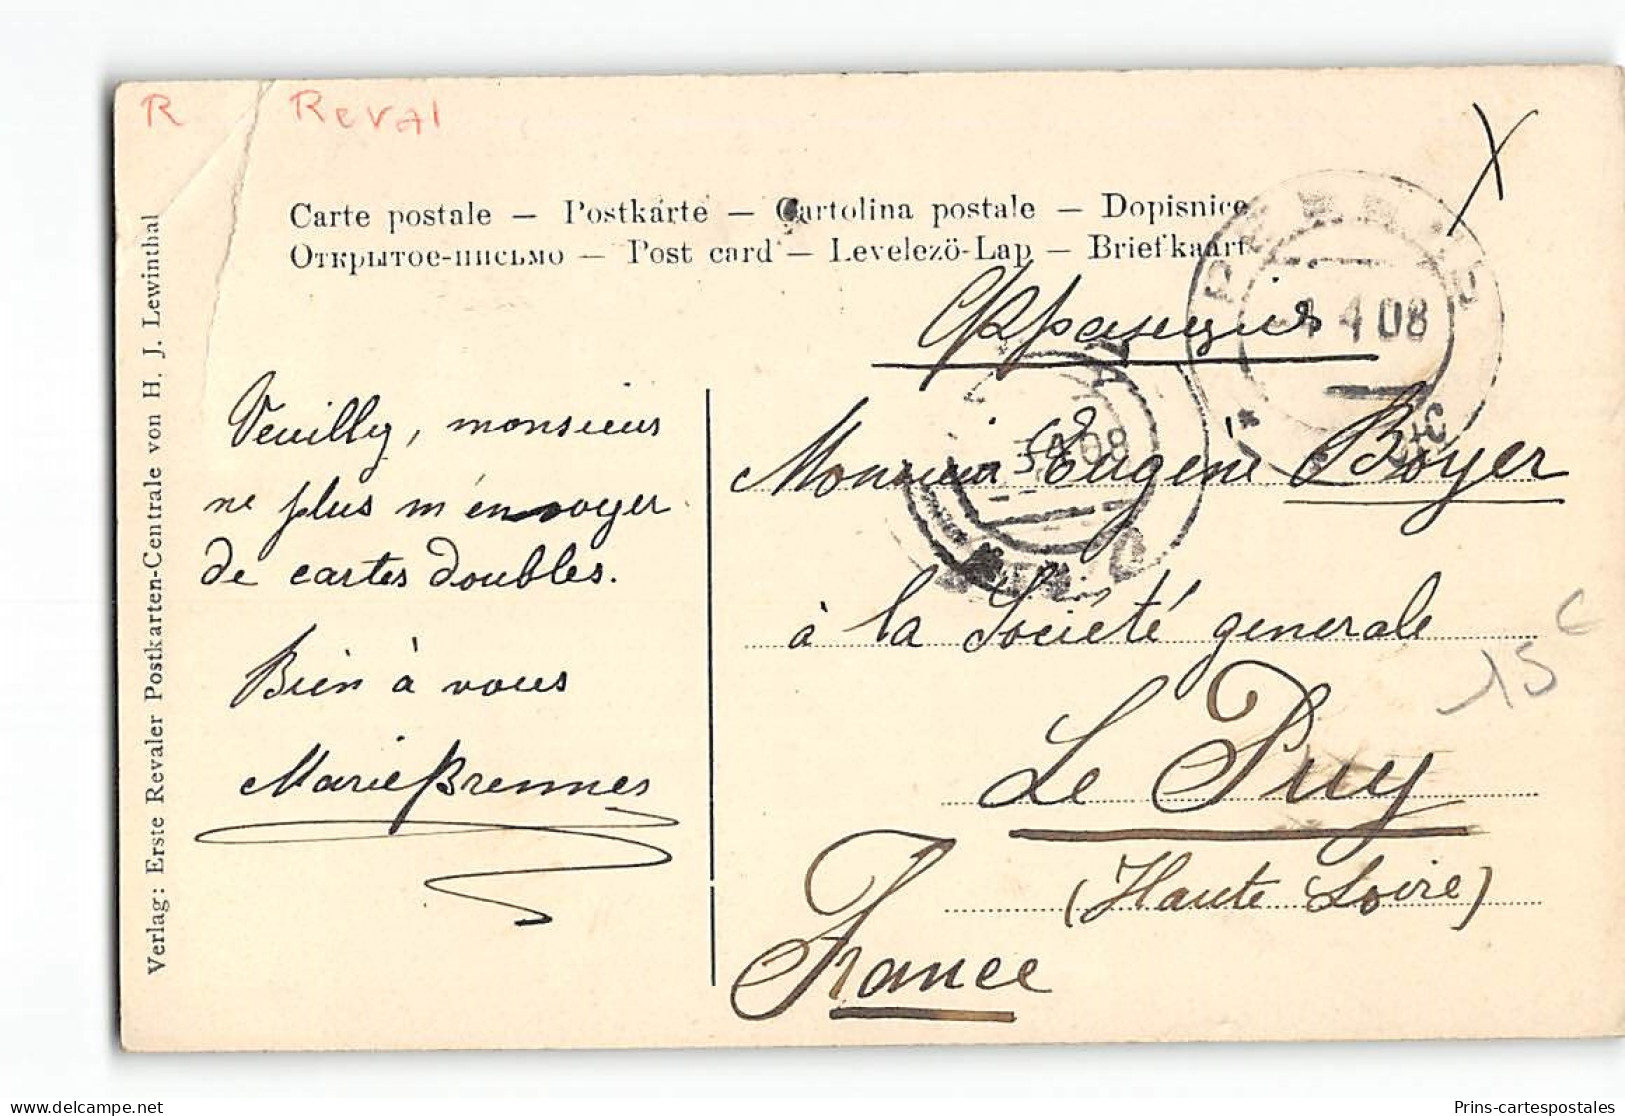 R Reval
Carte postale — Postkarte — Cartolina postale — Dopisnice
Открытое-письмо — Post card — Levelezö-Lap — Briefkaart
4 4 08
3 4 08
Франція
Veuilley, monsieur
ne plus m'envoyer
de cartes doubles.
Bien à vous
Marie Brennes
Monsieur Eugène Boyer
à la Société generale
15 c
Le Puy
(Haute Loire)
France
Verlag: Erste Revaler Postkarten-Centrale von H. J. Lewinthal
Prins-cartespostales
delcampe.net